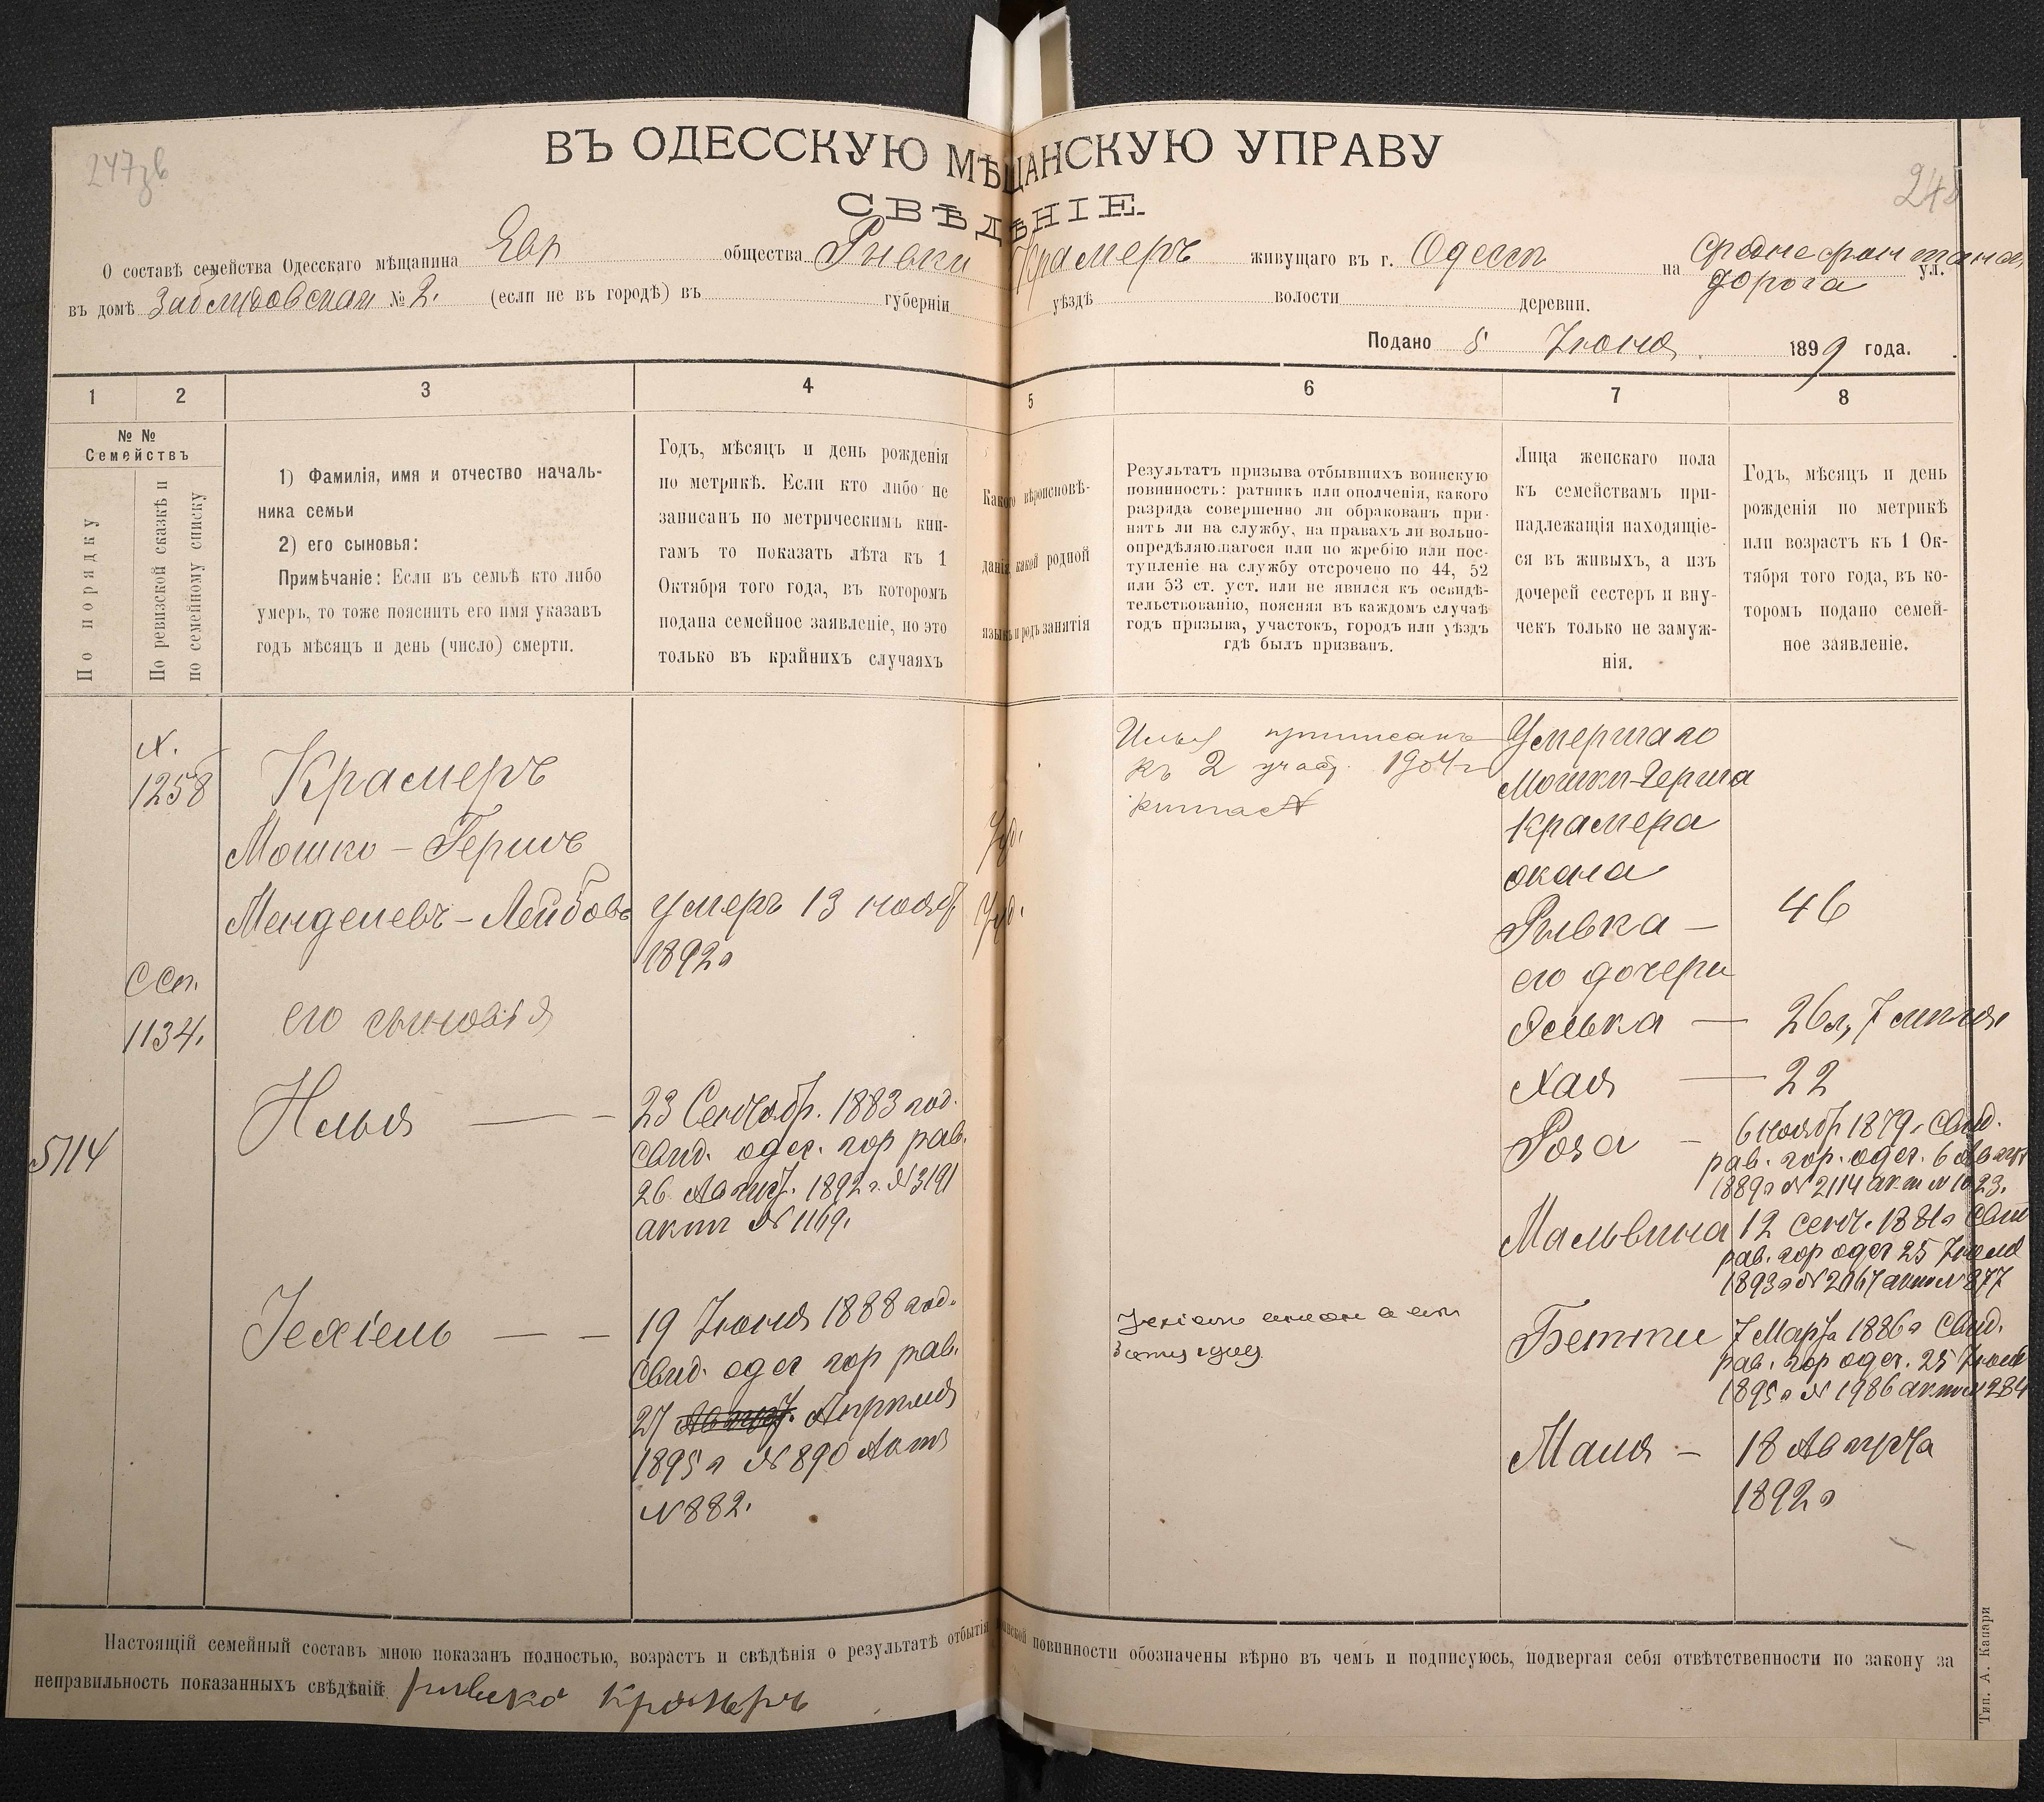 247зв
248
ВЪ ОДЕССКУЮ МѢЩАНСКУЮ УПРАВУ
СВѢДѢНІЕ.
О составѣ семейства Одесскаго мѣщанина Евр общества Рывки Крамеръ живущаго въ г. Одессѣ на Среднефонтанск ул.
дорога
въ домѣ Заблудовскаго № 2. (если не въ городѣ) въ губерніи уѣздѣ волости деревни.
Подано 5 Іюня 1899 года.
1 2 3 4 5 6 7 8
№ №
Семействъ
По порядку
По ревизской сказкѣ и
по семейному списку
1) Фамилія, имя и отчество началь-
ника семьи
2) его сыновья:
Примѣчаніе: Если въ семьѣ кто либо
умеръ, то тоже пояснить его имя указавъ
годъ мѣсяцъ и день (число) смерти.
Годъ, мѣсяцъ и день рожденія
по метрикѣ. Если кто либо не
записанъ по метрическимъ кни-
гамъ то показать лѣта къ 1
Октября того года, въ которомъ
подана семейное заявленіе, но это
только въ крайнихъ случаяхъ
Какого вѣроисповѣ-
данія, какой родной
языкъ и родъ занятія
Результатъ призыва отбывшихъ воинскую
повинность: ратникъ или ополченія, какого
разряда совершенно ли обракованъ при-
нятъ ли на службу, на правахъ ли вольно-
опредѣляющагося или по жребію или пос-
тупленіе на службу отсрочено по 44, 52
или 53 ст. уст. или не явился къ освидѣ-
тельствованію, поясняя въ каждомъ случаѣ
годъ призыва, участокъ, городъ или уѣздъ
гдѣ былъ призванъ.
Лица женскаго пола
къ семействамъ при-
надлежащія находящіе-
ся въ живыхъ, а изъ
дочерей сестеръ и вну-
чекъ только не замуж-
нія.
Годъ, мѣсяцъ и день
рожденія по метрикѣ
или возрастъ къ 1 Ок-
тября того года, въ ко-
торомъ подано семей-
ное заявленіе.
5714
1258
1134.
Крамеръ
Мошко - Гершъ
Менделевъ - Лейбовъ
его сыновья
Илья
Іехіель
умеръ 13 нояб
1892г
23 Сентябр. 1883 год.
Свид. одес. гор рав.
26 Август. 1892 г. № 3191
актъ № 1169.
19 Іюня 1888 год.
Свид. одес гор рав.
27 Август. Апрѣля
1895 г № 890 Актъ
№ 882.
Іуд.
Іуд.
Илья приписанъ
къ 2 участ. 1904 г
Умершаго
Мошки-Герша
Крамера
жена
Рывка — 46
его дочери
26л, 7 апрѣля
Хая — 22
Роза — 6 ноябр 1879 г Свид.
рав. гор. одес. 6 Август
1889 г № 2114 актъ № 1023.
Мальвина 12 сент. 1881г Свид
рав. гор одес 25 Іюля
1893 г № 2067 актъ № 877
Бетти 7 Марта 1886 г Свид.
рав. гор одес. 25 Іюля
1895 г № 1986 актъ № 284
Маня — 18 Августа
1892 г
Настоящій семейный составъ мною показанъ полностью, возрастъ и свѣдѣнія о результатѣ отбытія воинской повинности обозначены вѣрно въ чемъ и подписуюсь, подвергая себя отвѣтственности по закону за
неправильность показанныхъ свѣдѣній Рывка Крамеръ
Тип. А. Капари